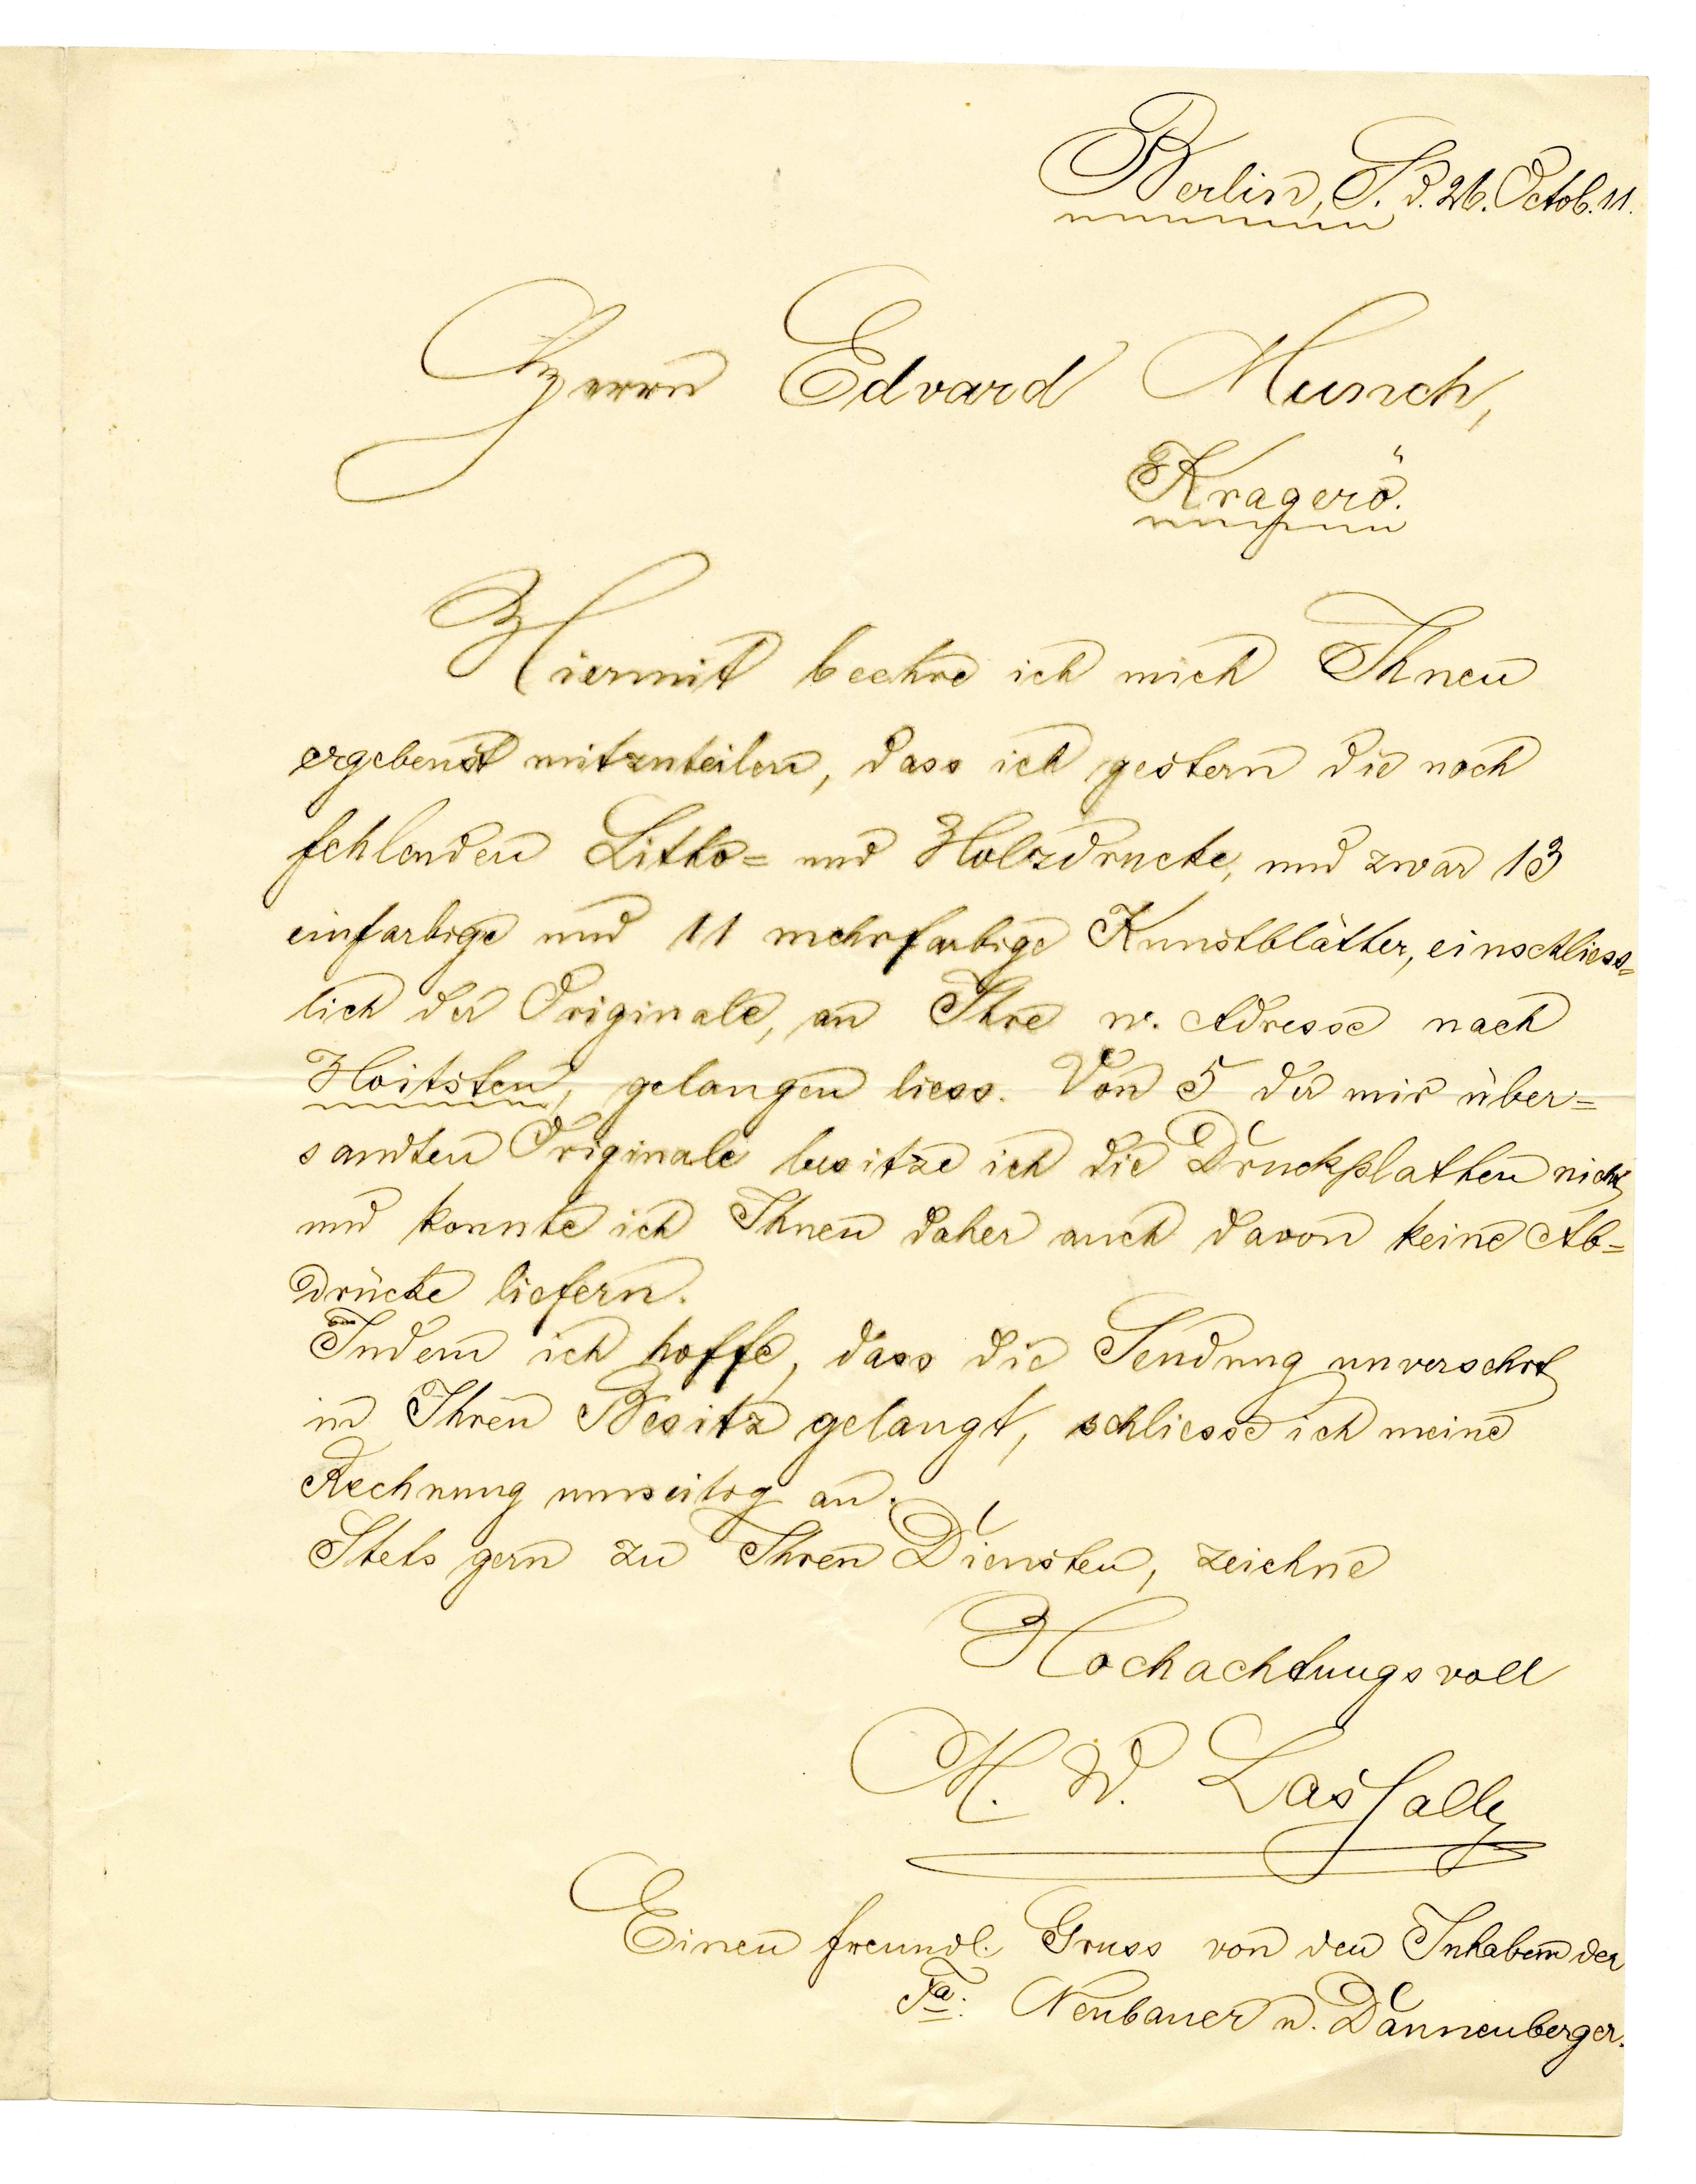 Berlin, S. d. 26. Octob. 11.
Herrn Edvard Munch,
Kragerö.
Hiermit beehre ich mich Ihnen
ergebenst mitzuteilen, dass ich gestern die noch
fehlenden Litho= und Holzdrucke, und zwar 13
einfarbige und 11 mehrfarbige Kunstblätter, einschliess=
lich der Originale, an Ihre w. Adresse nach
Hoitsten, gelangen liess. Von 5 der mir über=
sandten Originale besitze ich die Druckplatten nicht
und konnte ich Ihnen daher auch davon keine Ab=
drücke liefern.
Indem ich hoffe, dass die Sendung unversehrt
in Ihren Besitz gelangt, schliesse ich meine
Rechnung umseitig an.
Stets gern zu Ihren Diensten, zeichne
Hochachtungsvoll
M. W. Lassally
Einen freundl. Gruss von den Inhabern der
Fa. Neubauer u. Dannenberger.